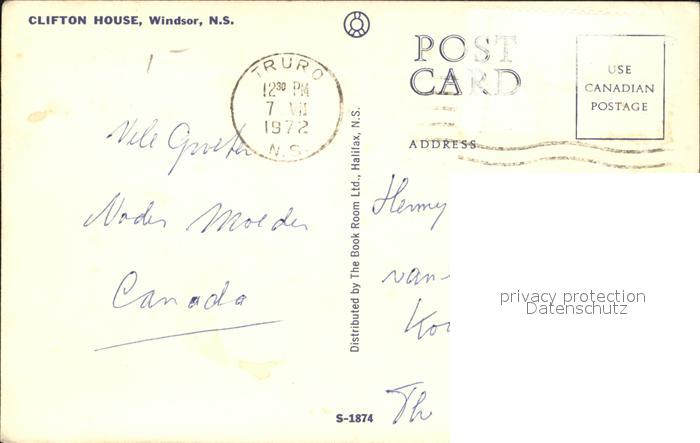 CLIFTON HOUSE, Windsor, N.S.
TRURO
12³⁰ PM
7 VII
1972
N.S.
Vele Groeten
Vader Moeder
Canada
Distributed by The Book Room Ltd., Halifax, N.S.
S-1874
POST
CARD
USE
CANADIAN
POSTAGE
ADDRESS
van
Th
privacy protection
Datenschutz